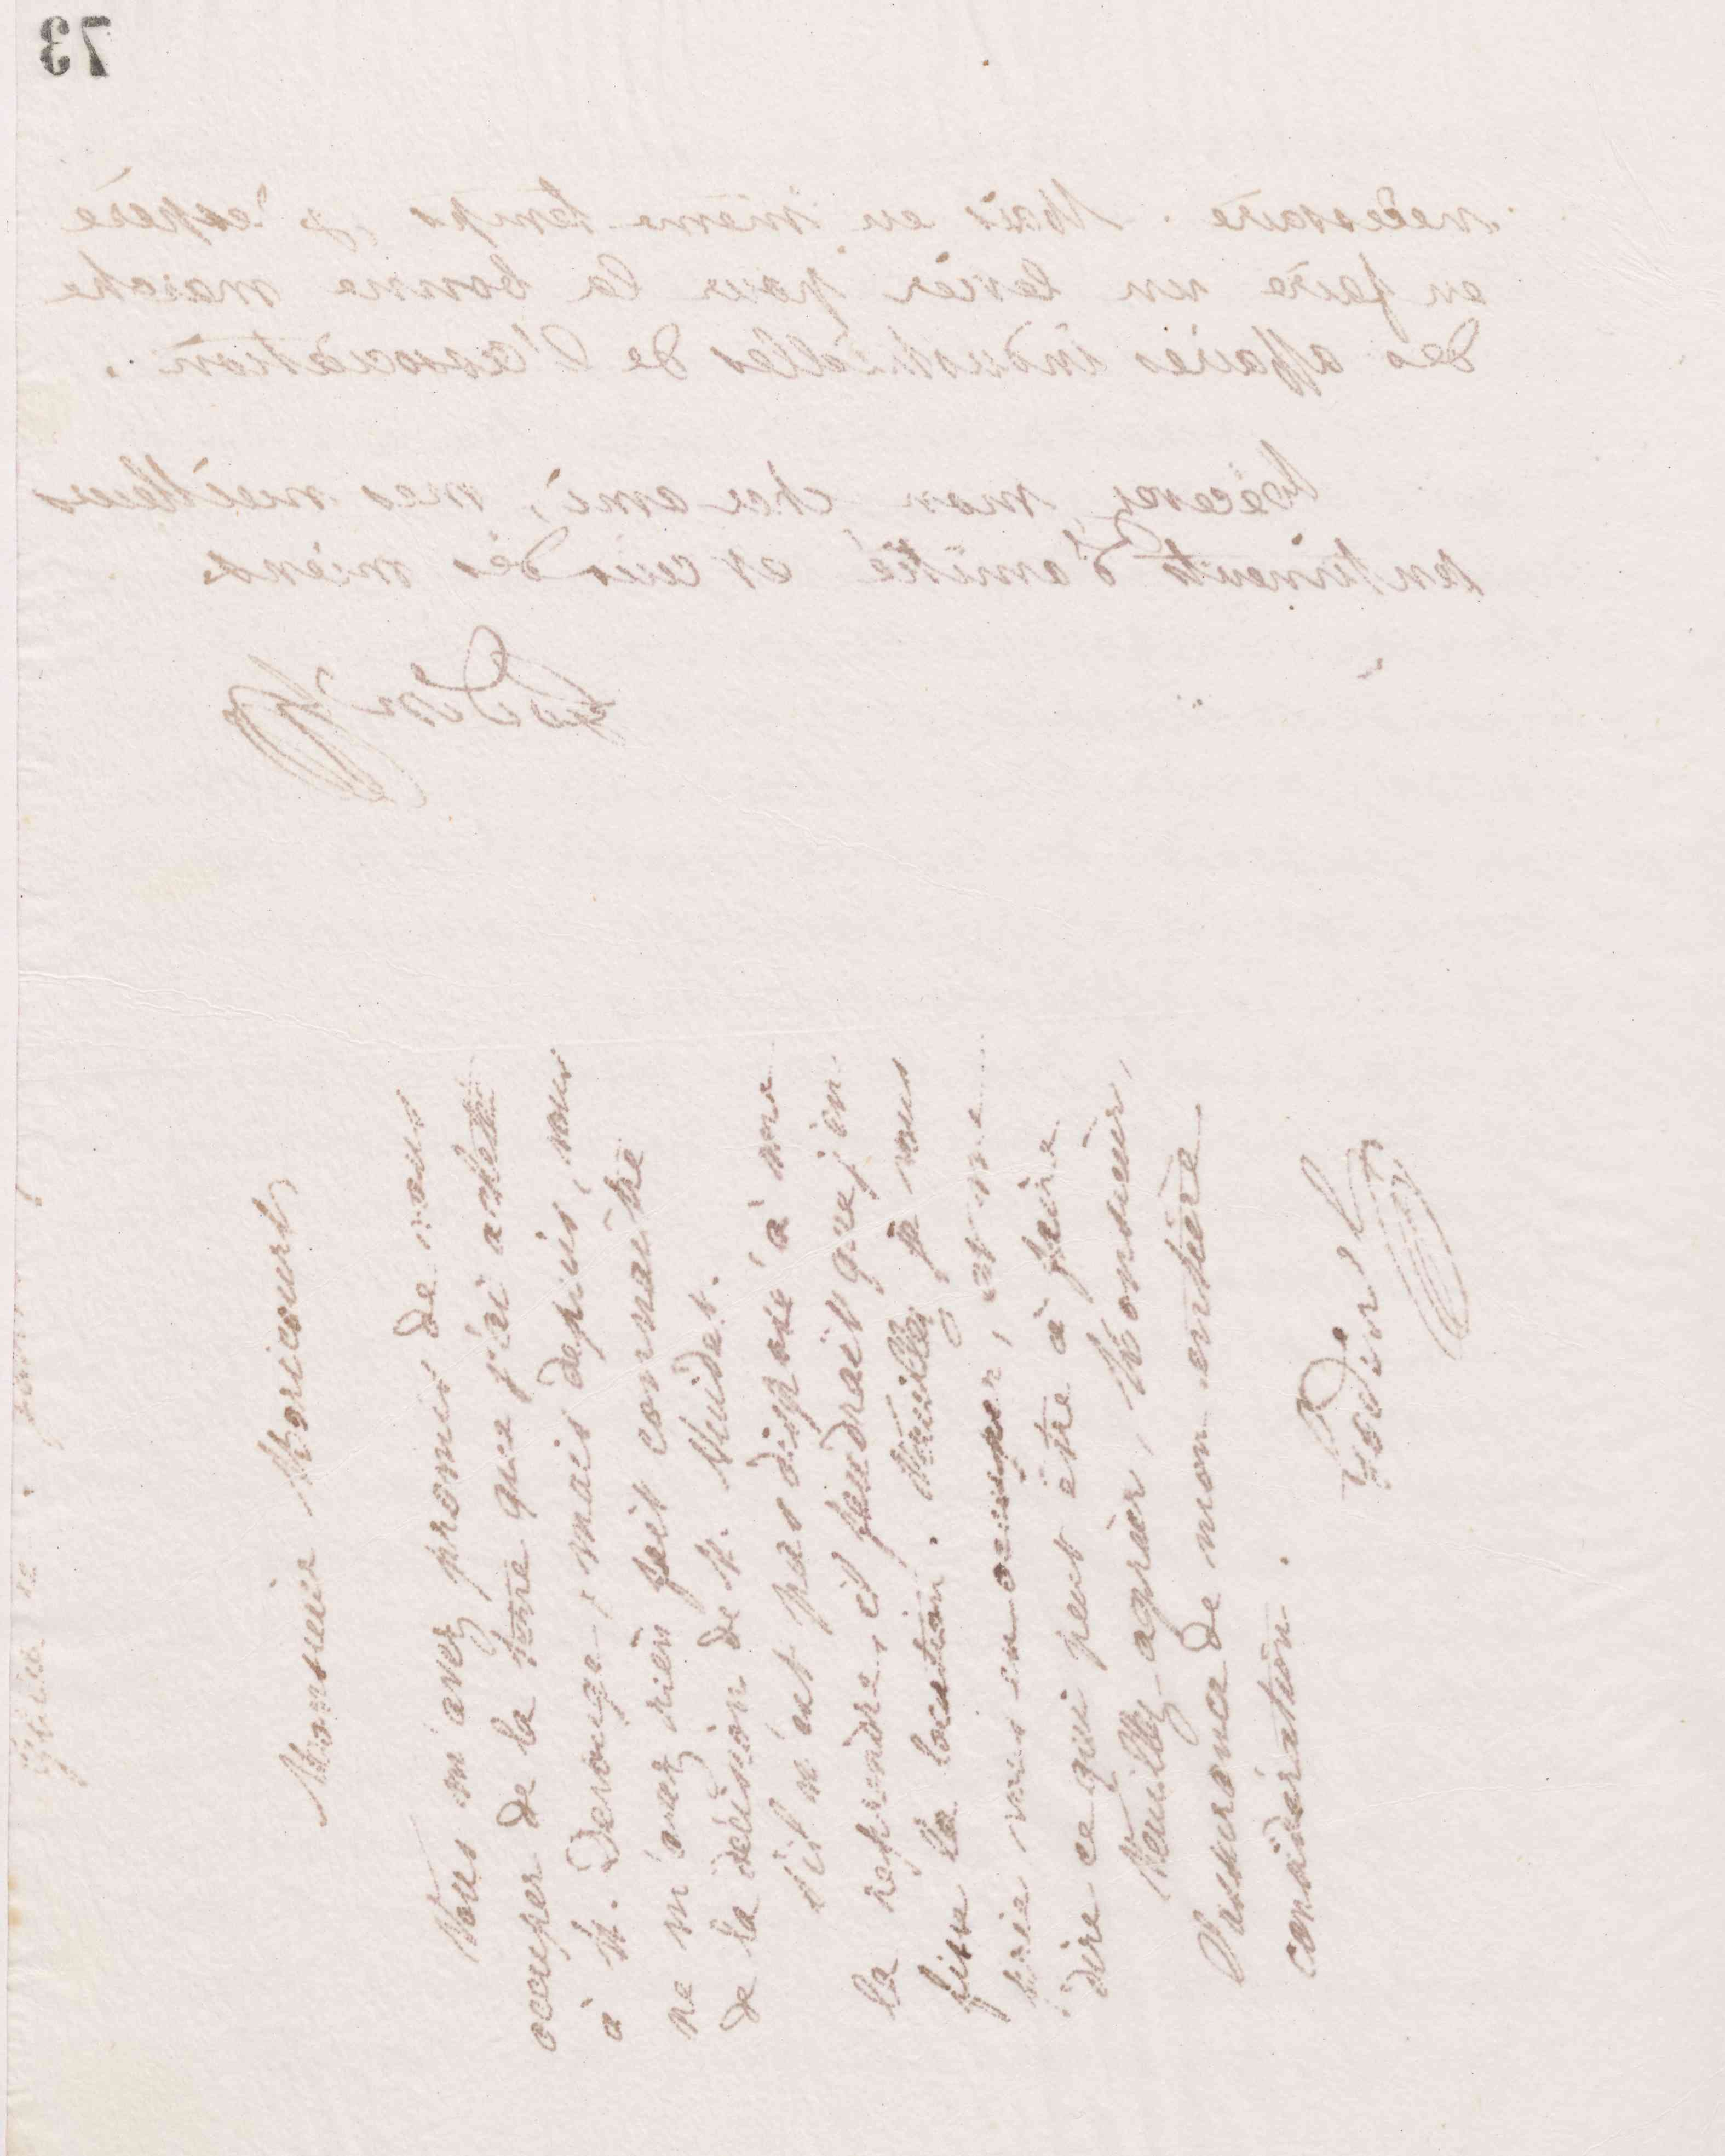 73
nécessaire. Mais en même temps, j'espère
en faire un levier pour la bonne marche
des affaires industrielles de l'association.
Recevez, mon cher ami, mes meilleurs
sentiments d'amitié et ceux des miens.
Godin
Monsieur Moricourt
Vous m'avez promis de vous
occuper de la terre que j'ai achetée
à M. Derouge, mais depuis, vous
ne m'avez rien fait connaître
de la décision de M. Muidet.
S'il n'est pas disposé à me
la reprendre, il faudrait que j'en
fisse la location. Veuillez, je vous
prie vous en occuper, et me
dire ce qui peut être à faire
Veuillez agréer, Monsieur,
l'assurance de mon entière
considération.
Godin